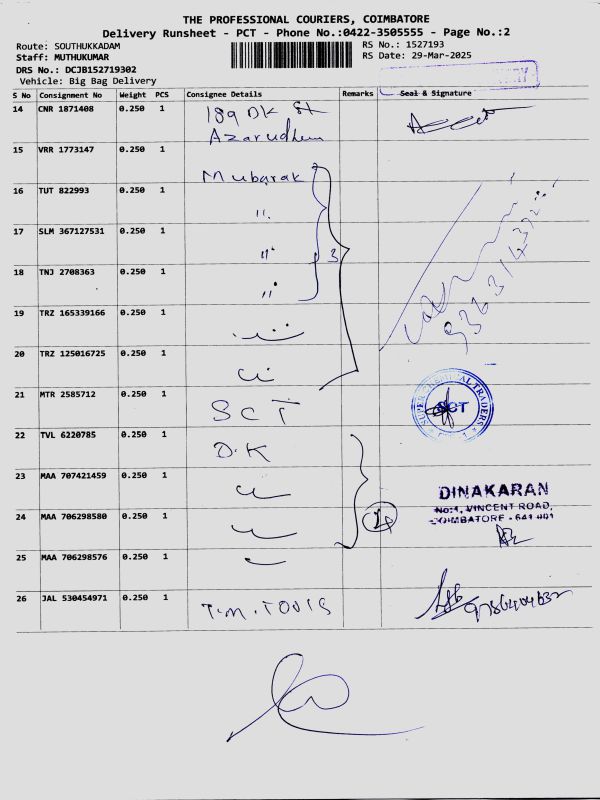 THE PROFESSIONAL COURIERS, COIMBATORE
Delivery Runsheet - PCT - Phone No.:0422-3505555 - Page No.:2
Route: SOUTHUKKADAM
RS No.: 1527193
Staff: MUTHUKUMAR
RS Date: 29-Mar-2025
DRS No.: DCJB152719302
Vehicle: Big Bag Delivery
S No Consignment No Weight PCS Consignee Details Remarks Seal & Signature
14 CNR 1871408 0.250 1 189 DK St
Azarudheen
15 VRR 1773147 0.250 1 Mubarak
16 TUT 822993 0.250 1 "
17 SLM 367127531 0.250 1 " 3
18 TNJ 2708363 0.250 1 "
19 TRZ 165339166 0.250 1
20 TRZ 125016725 0.250 1
21 MTR 2585712 0.250 1 SCT
SUPER CHEMICAL TRADERS
SCT
22 TVL 6220785 0.250 1 D.K
23 MAA 707421459 0.250 1
DINAKARAN
No:1, VINCENT ROAD,
COIMBATORE - 641 001
24 MAA 706298580 0.250 1 4
25 MAA 706298576 0.250 1
26 JAL 530454971 0.250 1 T.M. TOOLS